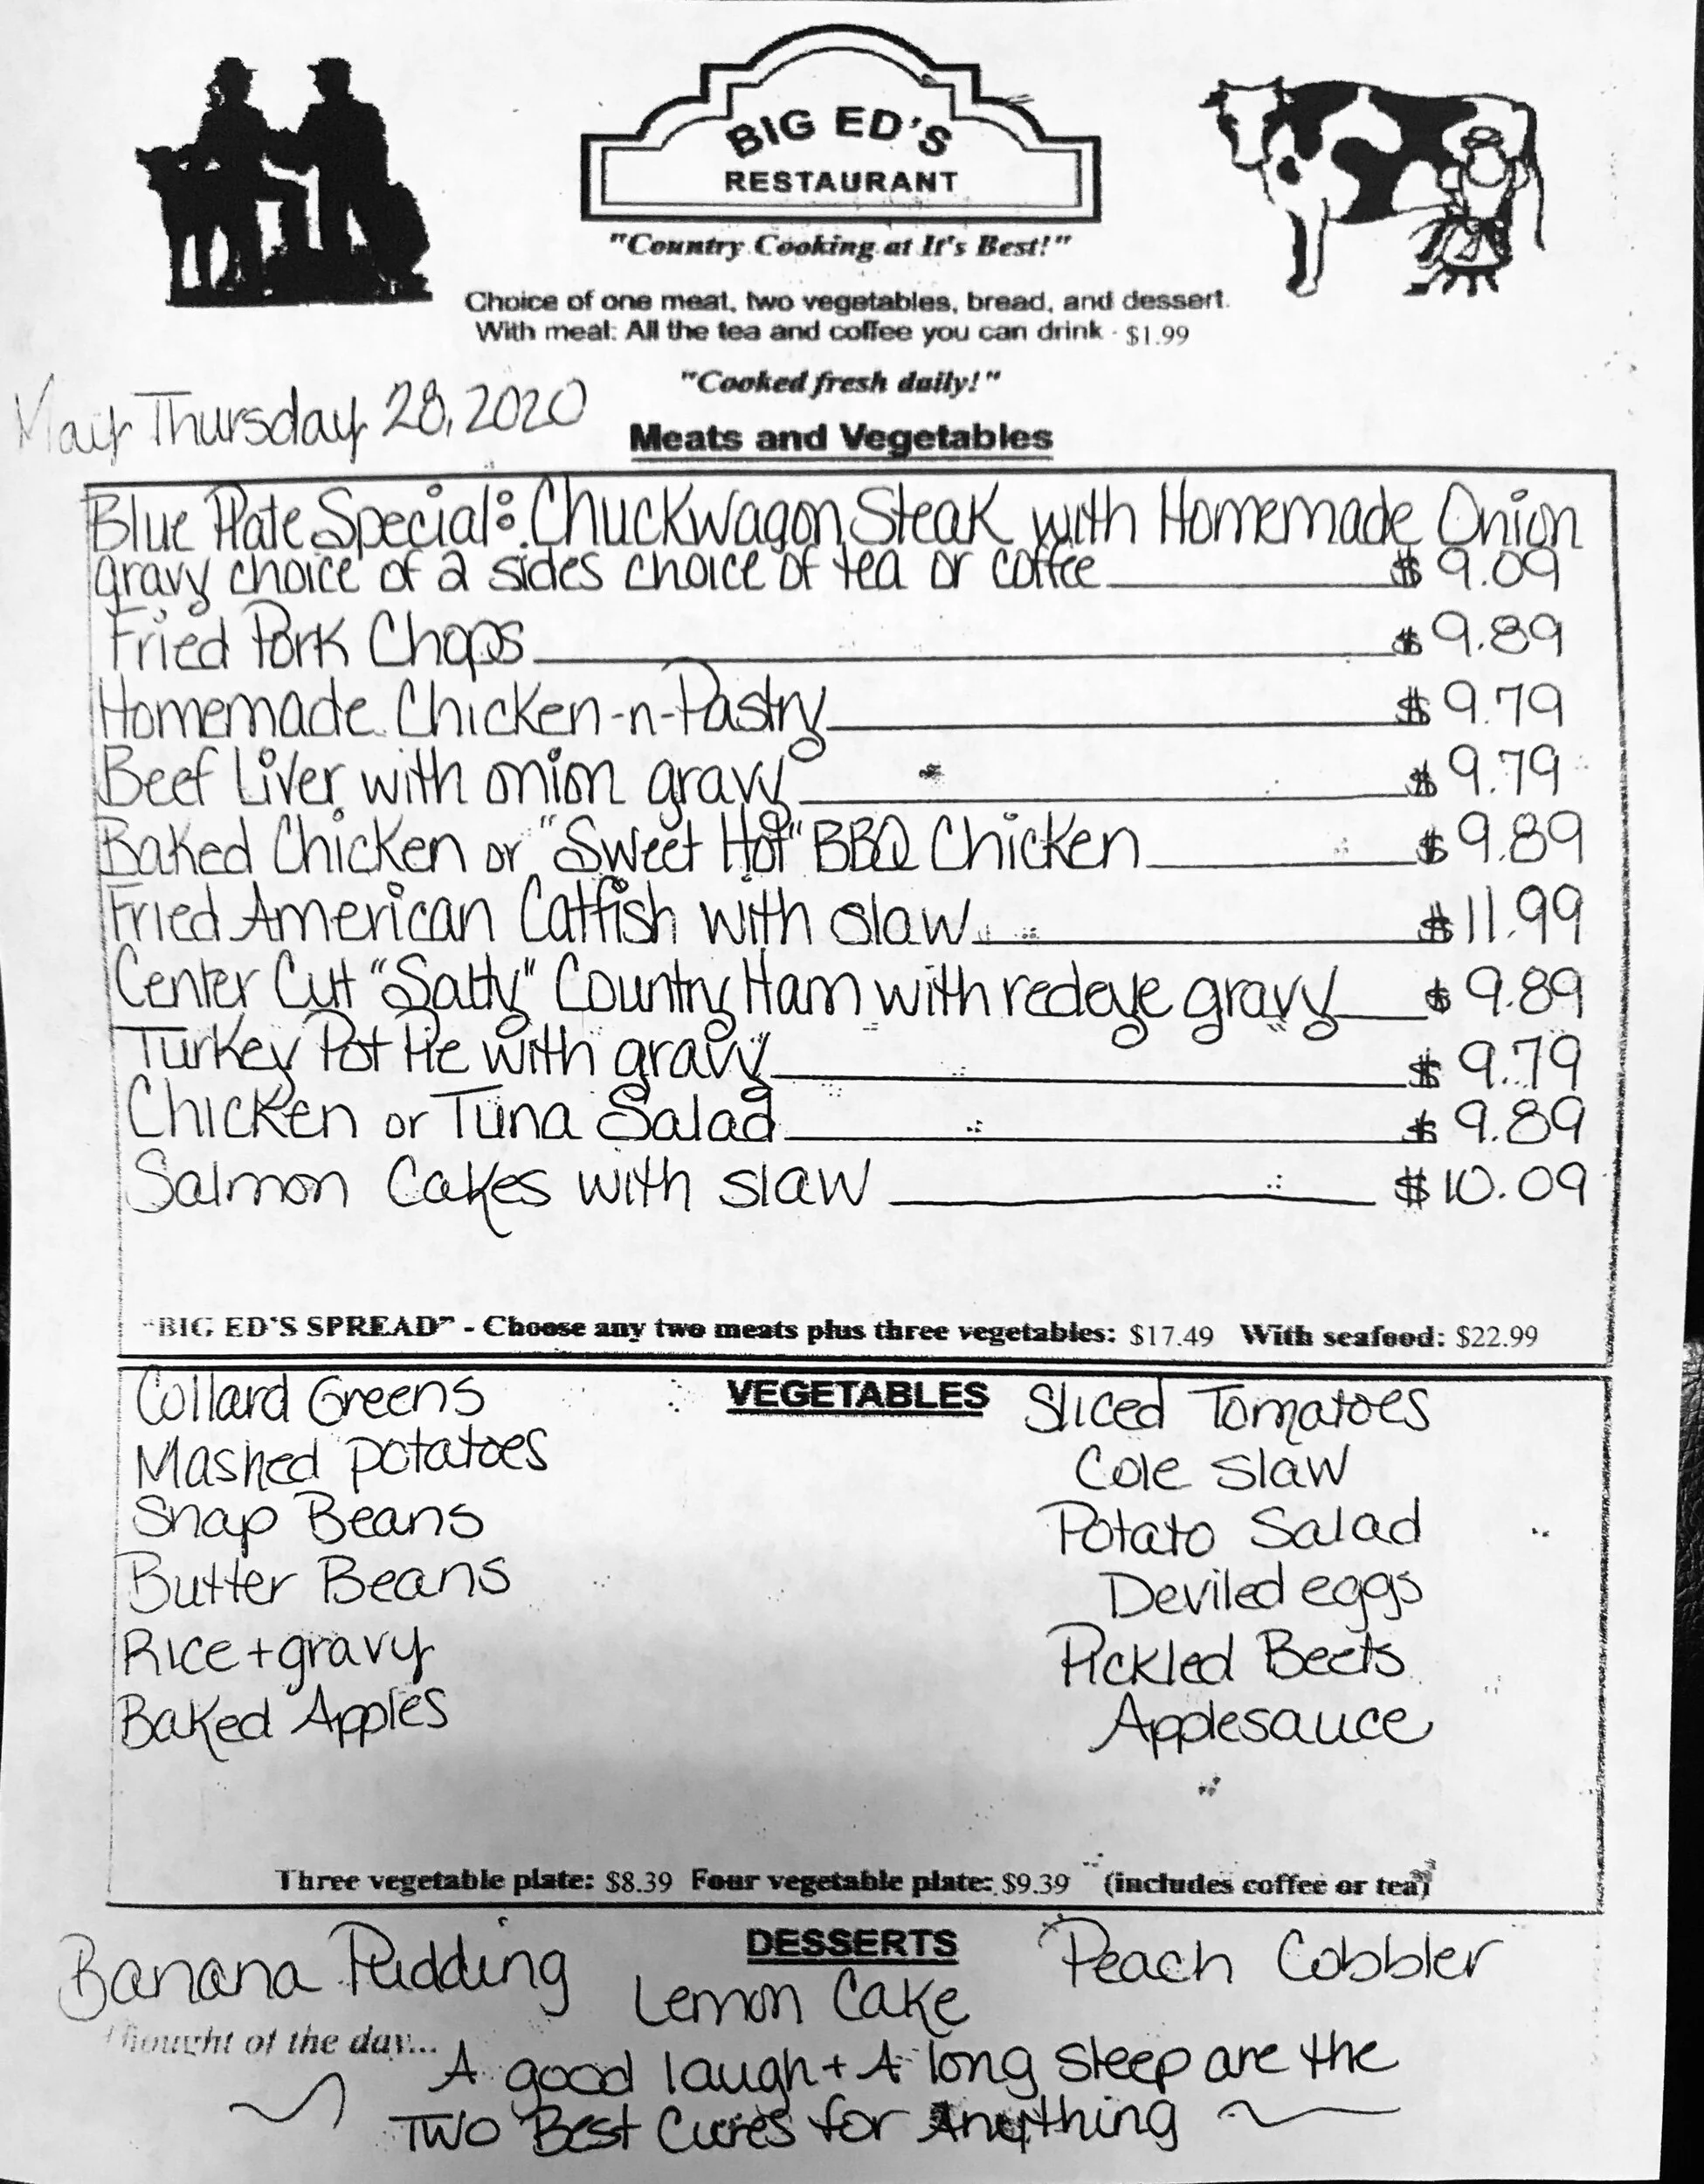 BIG ED'S
RESTAURANT
"Country Cooking at It's Best!"
Choice of one meat, two vegetables, bread, and dessert.
With meal: All the tea and coffee you can drink - $1.99
"Cooked fresh daily!"
May Thursday 28, 2020
Meats and Vegetables
Blue Plate Special: Chuckwagon Steak with Homemade Onion
gravy choice of 2 sides choice of tea or coffee $9.09
Fried Pork Chops $9.89
Homemade Chicken-n-Pastry $9.79
Beef Liver with onion gravy $9.79
Baked Chicken or "Sweet Hot" BBQ Chicken $9.89
Fried American Catfish with slaw $11.99
Center Cut "Salty" Country Ham with redeye gravy $9.89
Turkey Pot Pie with gravy $9.79
Chicken or Tuna Salad $9.89
Salmon Cakes with slaw $10.09
"BIG ED'S SPREAD" - Choose any two meats plus three vegetables: $17.49 With seafood: $22.99
VEGETABLES
Collard Greens
Mashed potatoes
Snap Beans
Butter Beans
Rice + gravy
Baked Apples
Sliced Tomatoes
Cole slaw
Potato Salad
Deviled eggs
Pickled Beets
Applesauce
Three vegetable plate: $8.39 Four vegetable plate: $9.39 (includes coffee or tea)
DESSERTS
Banana Pudding
Lemon Cake
Peach Cobbler
Thought of the day...
A good laugh + A long sleep are the
Two Best Cures for Anything